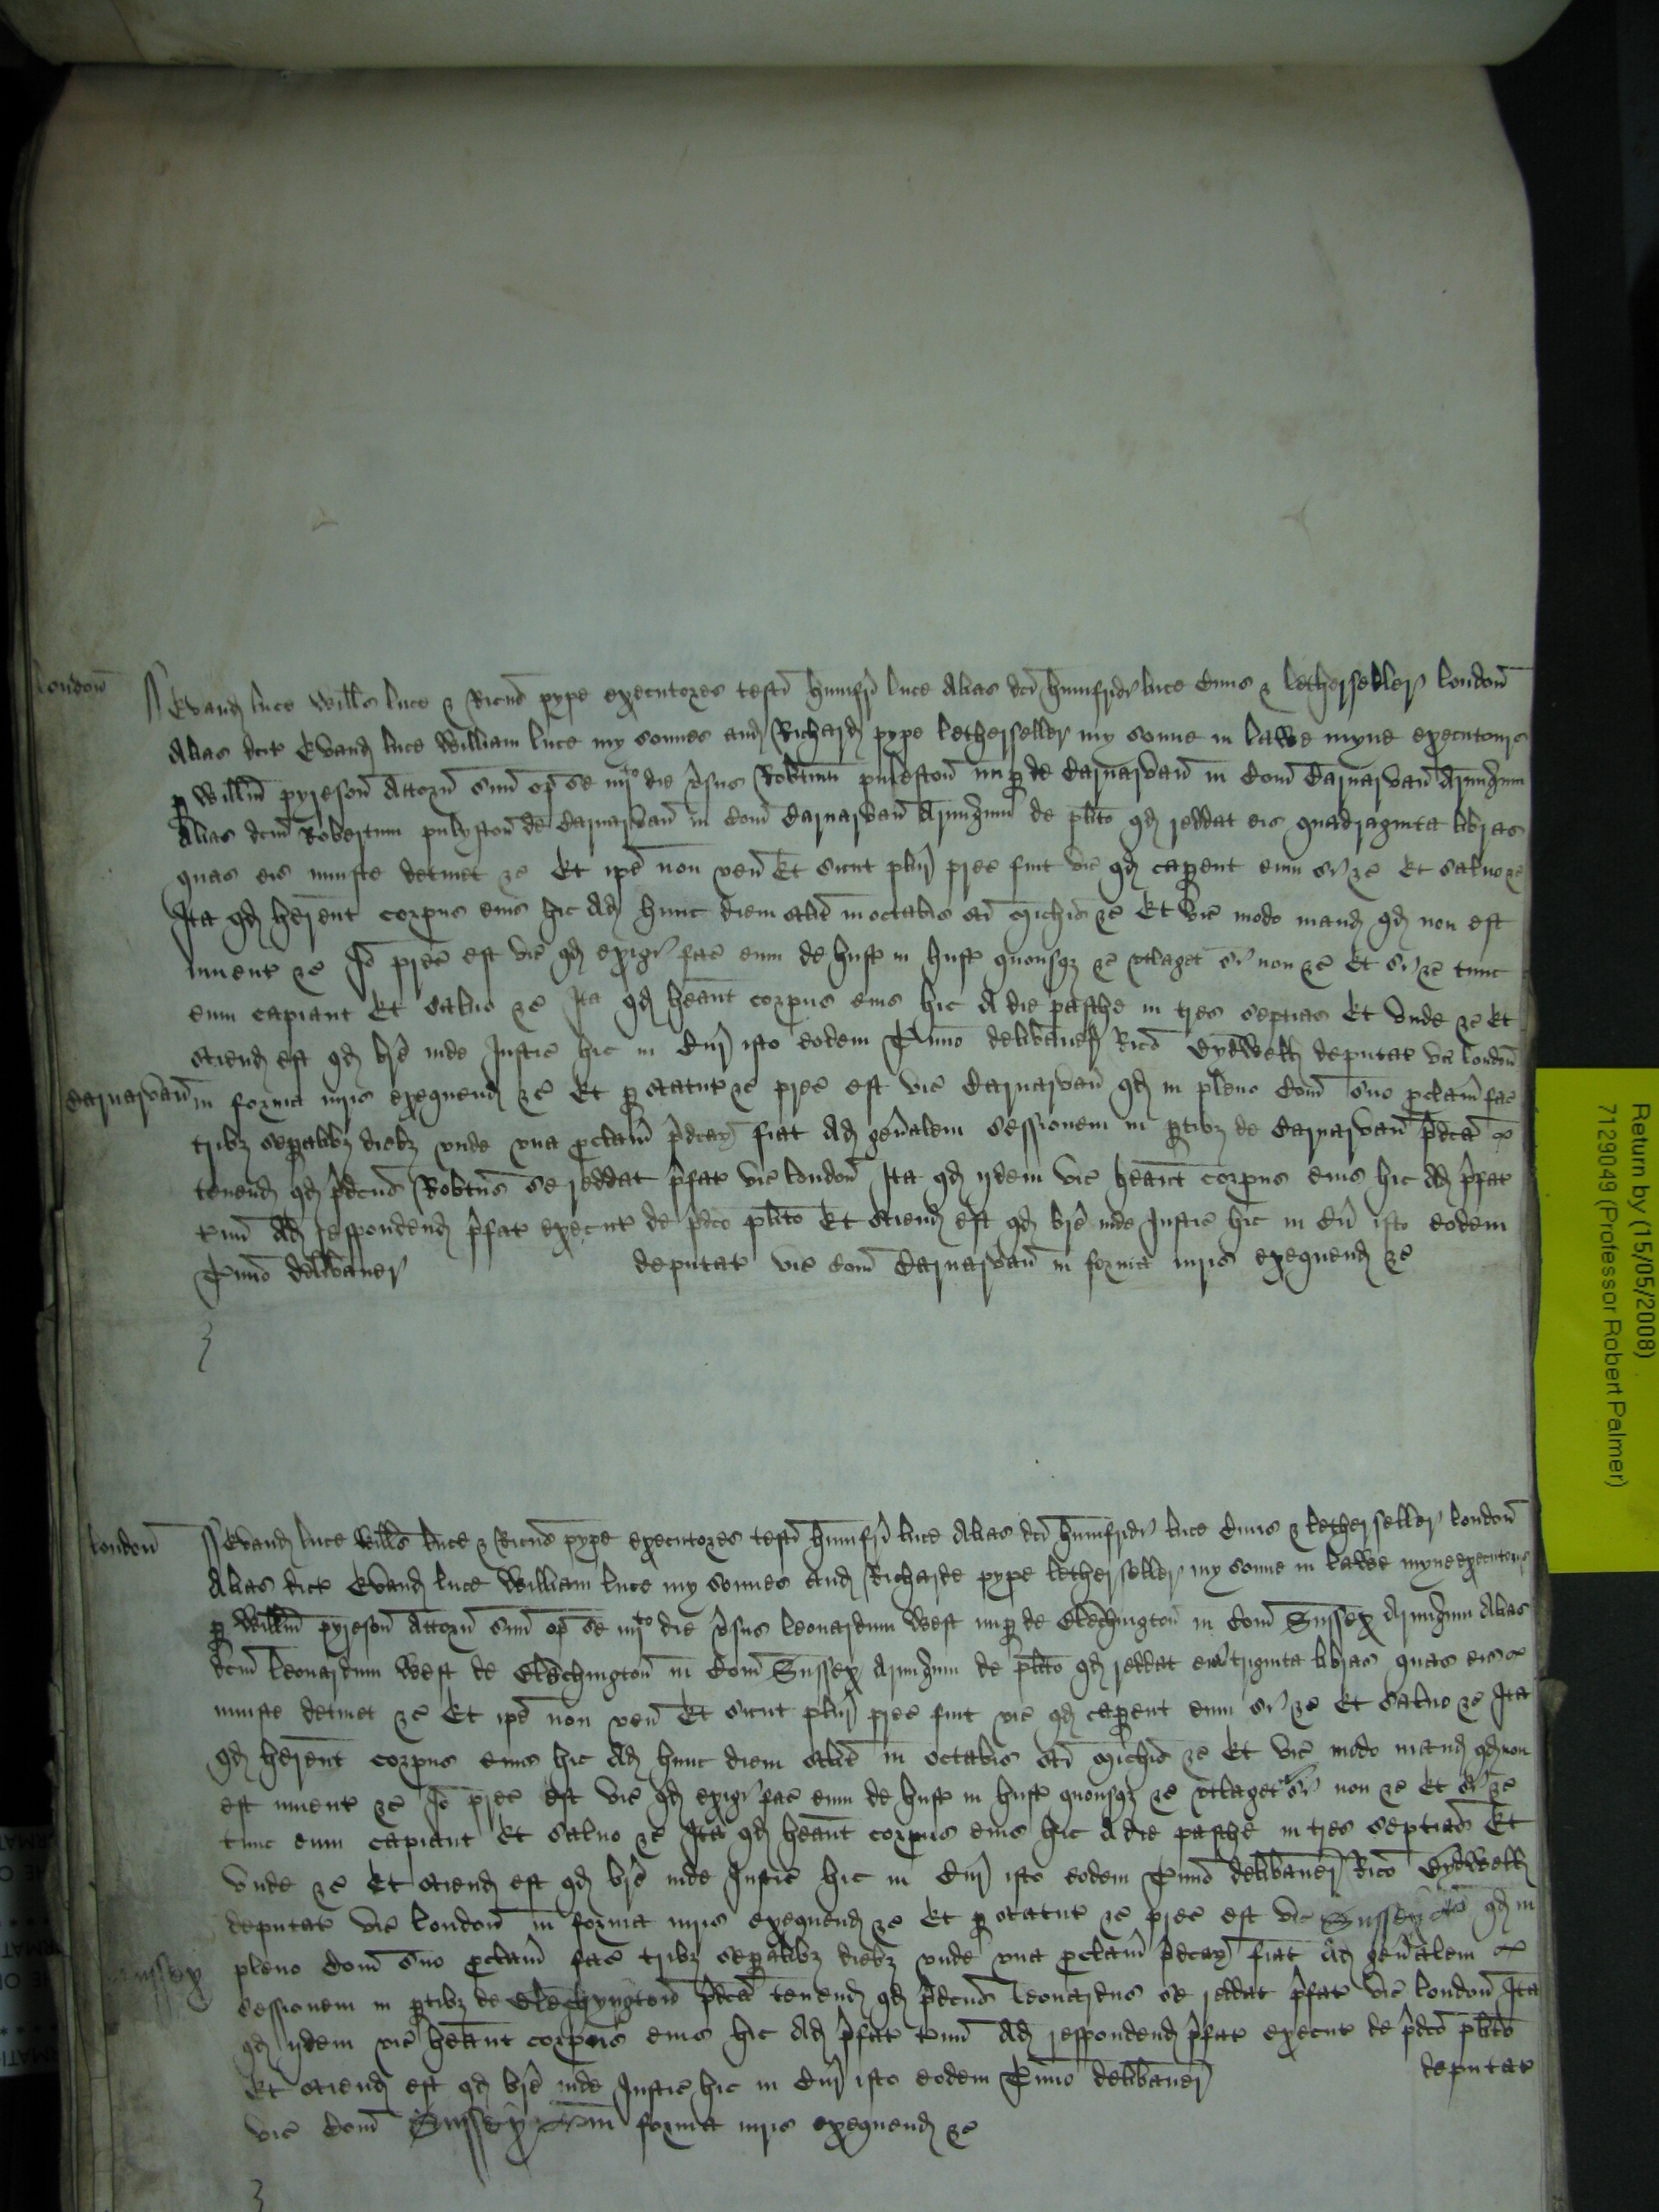 london Evand luce Wills luce & Ricus pype executores testi humfri luce Alias dci humfridi luce Civis & lethersell london
Alias dict Evand luce William luce my sonnes and Richard pype letherseller my sonne in lawe myne executours
p Willm pyreson Attorn suu op se iiijto die vsus Robtum puleston nup de Carnarvan in Com Carnarvan Armigum
Alias dcm Robertum pulyston de Carnarvan in Com Carnarvan Armigum de plito qd reddat eis quadraginta libras
quas eis iniuste detinet &c Et ipe non ven Et sicut plur prec fuit vic qd caperent eum si &c Et salvo &c
Ita qd herent corpus eius hic Ad hunc diem scilt in octabis sci Michis &c Et vic modo mand qd non est
invent &c Io prec est vic qd exigi fac eum de hust in hust quousqz &c utlaget si non &c Et si &c tunc
eum capiant Et salvo &c Ita qd heant corpus eius hic A die pasche in tres septias Et unde &c Et
sciend est qd bre inde Justic hic in Cur isto eodem Tmino delibaver Rico Eydwell deputat vic london
Carnarvan in forma iuris exequend &c Et p statut &c prec est vic Carnarvan qd in pleno Com suo pclam fac
tribz sepalibz diebz unde una pclam pdcar fiat Ad genalem sessionem in ptibz de Carnarvan pdca
tenend qd pdcus Robtus se reddat pfat vic london Ita qd ijdem vic heant corpus eius hic Ad pfat
tmin Ad respondend pfat execut de pdco plito Et sciend est qd bre inde Justic hic in Cur isto eodem
Tmino delibaver deputat vic Com Carnarvan in forma iuris exequend &c
london Evand luce Wills luce & Ricus pype executores testi humfri luce Alias dci humfridi luce Civis & letherseller london
Alias dict Evand luce William luce my sonnes and Richarde pype letherseller my sonne in lawe myne executours
p Willm pyreson Attorn suu op se iiijto die vsus leonardum West nup de Clechington in Com Sussex Armigum Alias
dcm leonardum West de Clechington in Com Sussex Armigum de plito qd reddat eis triginta libras quas eis
iniuste detinet &c Et ipe non ven Et sicut plur prec fuit vic qd caperent eum si &c Et salvo &c Ita
qd herent corpus eius hic Ad hunc diem scilt in octabis sci Michis &c Et vic modo mand qd non
est invent &c Io prec est vic qd exigi fac eum de hust in hust quousqz &c utlaget si non &c Et si &c
tunc eum capiant Et salvo &c Ita qd heant corpus eius hic A die pasche in tres septias Et
unde &c Et sciend est qd bre inde Justic hic in Cur isto eodem Tmino delibaver Rico Eydwell
deputat vic london in forma iuris exequend &c Et p statut &c prec est vic Sussex qd in
Sussex pleno Com suo pclam fac tribz sepalibz diebz unde una pclam pdcar fiat Ad genalem
sessionem in ptibz de Clechyngton pdca tenend qd pdcus leonardus se reddat pfat vic london Ita
qd ijdem vic heant corpus eius hic Ad pfat tmin Ad respondend pfat execut de pdco plito
Et sciend est qd bre inde Justic hic in Cur isto eodem Tmino delibaver deputat
vic Com Sussex in forma iuris exequend &c
Return by (15/05/2008)
7129049 (Professor Robert Palmer)